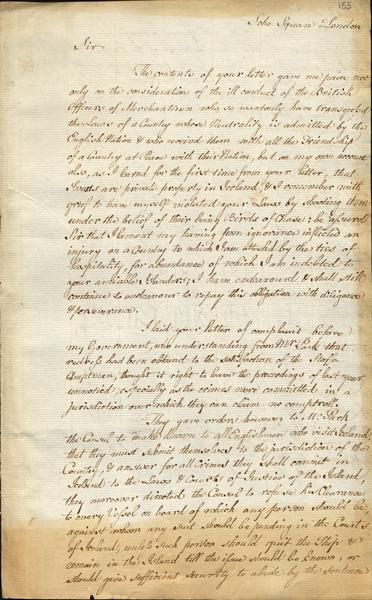 155
Soho Square London
Sir
The contents of your letter gave me pain not
only on the consideration of the ill conduct of the British
Officers of Merchantmen who so wantonly have transgressd
the Laws of a Country whose Neutrality is admitted by the
English Nation & who receivd them with all the Friendship
of a Country at Peace with their Nation, but on my own account
also, as I learnd for the first time from your letter, that
Swans are private property in Iceland, & I remember with
grief to have myself violated your Laws by shooting them
under the belief of their being Birds of Chase; be assurd
Sir that I lament my having from ignorance inflicted an
injury on a Country to which I am attachd by the ties of
Hospitality, for abundance of which I am indebted to
your amiable Islanders; I have endeavourd & shall still
continue to endeavour to repay this obligation with diligence
& perseverance.
I laid your letter of complaint before
my Government, who understanding from Mr Park that
redress had been obtaind to the satisfaction of the Stafts
Amptman, thought it right to leave the proceedings of last year
unnoticd, especially as the crimes were committed in a
jurisdiction over which they can claim no comptroll.
They gave orders however to Mr. Park
the Consul to make known to all Englishmen who visit Iceland
that they must submit themselves to the jurisdiction of the
Country, & answer for all Crimes they shall commit in
Iceland to the Laws & Courts of Justice of the Island,
they moreover directed the Consul to refuse his Clearance
to every Vessel on board of which any person should be,
against whom any suit should be pending in the Courts
of Iceland, unless such person should quit the Ship &
remain in the Island till the issue should be known, or
should give sufficient security to abide by the sentence